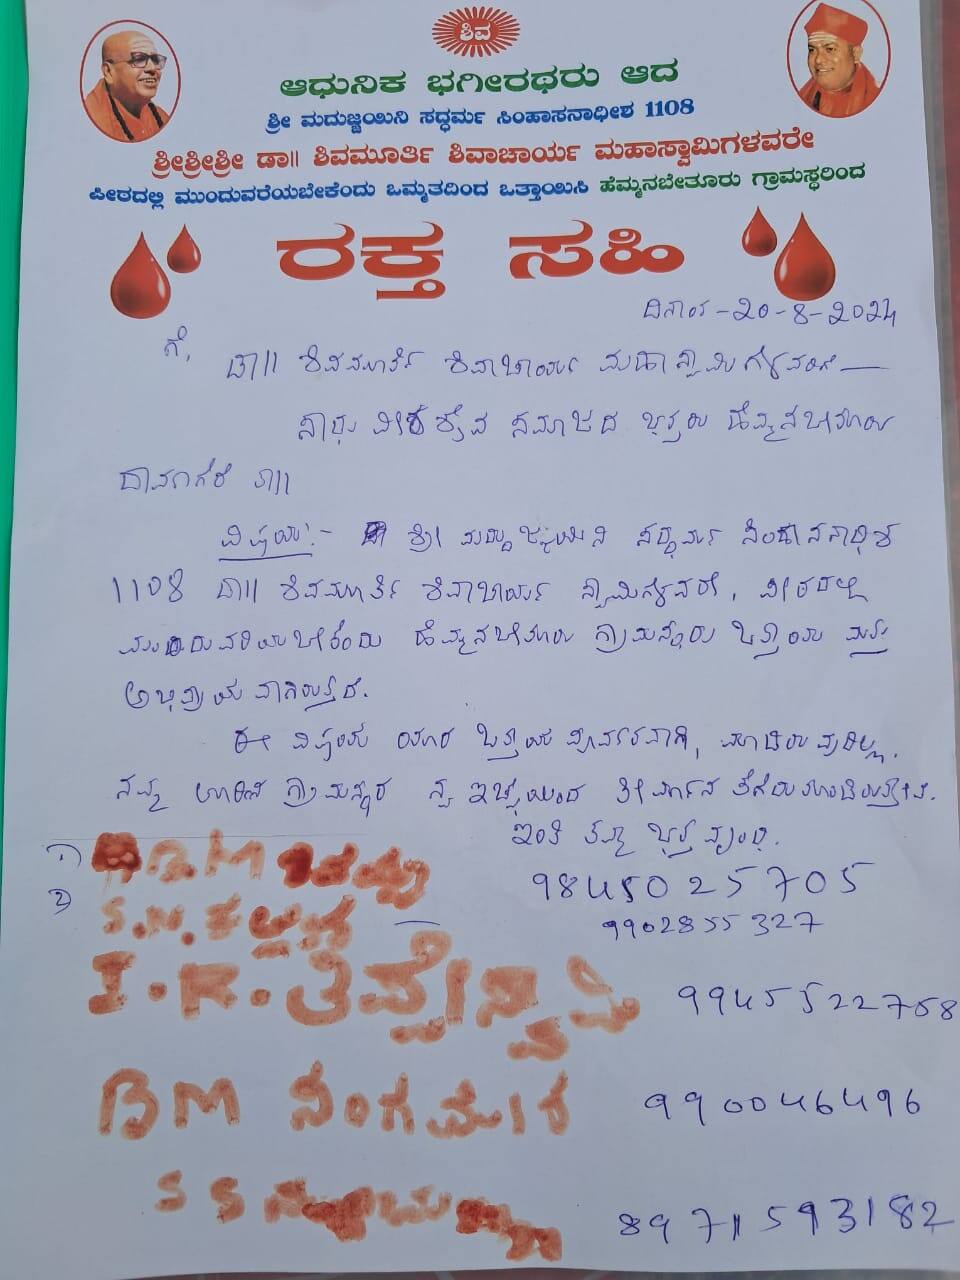 ಶಿವ
ಆಧುನಿಕ ಭಗೀರಥರು ಆದ
ಶ್ರೀ ಮದುಜ್ಜಯಿನಿ ಸದ್ಧರ್ಮ ಸಿಂಹಾಸನಾಧೀಶ 1108
ಶ್ರೀಶ್ರೀಶ್ರೀ ಡಾ॥ ಶಿವಮೂರ್ತಿ ಶಿವಾಚಾರ್ಯ ಮಹಾಸ್ವಾಮಿಗಳವರೇ
ಪೀಠದಲ್ಲಿ ಮುಂದುವರೆಯಬೇಕೆಂದು ಒಮ್ಮತದಿಂದ ಒತ್ತಾಯಿಸಿ ಹೆಮ್ಮನಬೇತೂರು ಗ್ರಾಮಸ್ಥರಿಂದ
ರಕ್ತ ಸಹಿ
ದಿನಾಂಕ -20-8-2024
ಗೆ,
ಡಾ॥ ಶಿವಮೂರ್ತಿ ಶಿವಾಚಾರ್ಯ ಮಹಾಸ್ವಾಮಿಗಳವರಿಗೆ —
ಸಾಧು ವೀರಶೈವ ಸಮಾಜದ ಭಕ್ತರು ಹೆಮ್ಮನಬೇತೂರು
ದಾವಣಗೆರೆ ತಾ॥
ವಿಷಯ:- ಶ್ರೀ ಮದ್ದುಜ್ಜಯಿನಿ ಸದ್ಧರ್ಮ ಸಿಂಹಾಸನಾಧೀಶ
1108 ಡಾ॥ ಶಿವಮೂರ್ತಿ ಶಿವಾಚಾರ್ಯ ಸ್ವಾಮಿಗಳವರೇ, ಪೀಠದಲ್ಲಿ
ಮುಂದುವರಿಯಬೇಕೆಂದು ಹೆಮ್ಮನಬೇತೂರು ಗ್ರಾಮಸ್ಥರು ಒತ್ತಾಯ ಮತ್ತು
ಅಭಿಪ್ರಾಯವಾಗಿರುತ್ತದೆ.
ಈ ವಿಷಯ ಯಾರ ಒತ್ತಾಯ ಪೂರ್ವಕವಾಗಿ, ಮಾಡಿರುವುದಿಲ್ಲ.
ನಮ್ಮ ಊರಿನ ಗ್ರಾಮಸ್ಥರ ಸ್ವ ಇಚ್ಛೆಯಿಂದ ತೀರ್ಮಾನ ತೆಗೆದುಕೊಂಡಿರುತ್ತೇವೆ.
ಇಂತಿ ತಮ್ಮ ಭಕ್ತ ವೃಂದ.
1) B.M 9845025705
2) S.N. 9902855327
I.R. ತಿಪ್ಪೇಸ್ವಾಮಿ 9945522768
BM ಸಂಗಮೇಶ 990046496
S S 8971593182